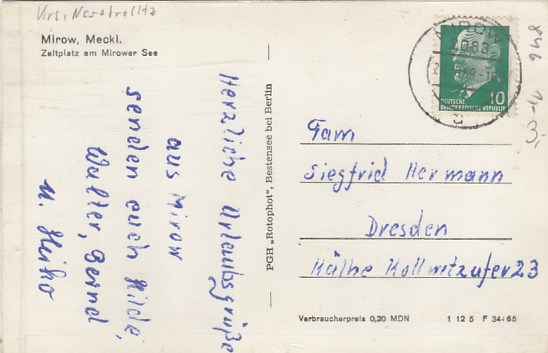 Krs. Neustrelitz
Mirow, Meckl.
Zeltplatz am Mirower See
Herzliche Urlaubsgrüße
aus Mirow
senden euch Hilde,
Walter, Bernd
u. Heiko
PGH „Rotophot", Bestensee bei Berlin
MIROW
10
DEUTSCHE
DEMOKRATISCHE REPUBLIK
Fam
Siegfried Hermann
Dresden
Käthe Kollwitzufer 23
Verbraucherpreis 0,20 MDN
1 12 5 F 34/65